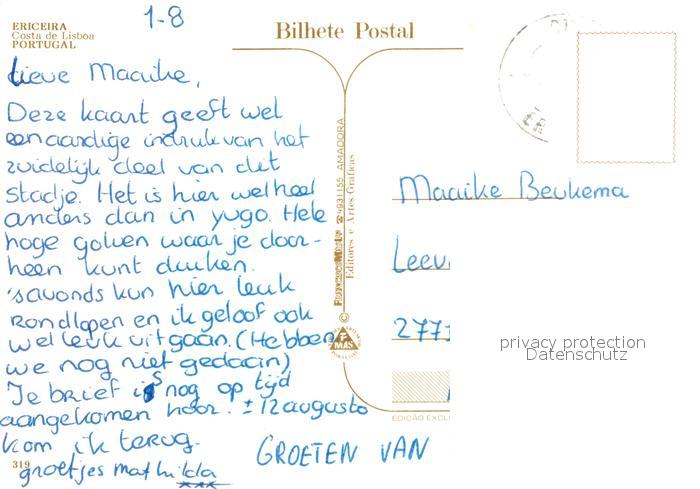 ERICEIRA
Costa de Lisboa
PORTUGAL
1-8
Bilhete Postal
Lieve Maaike,
Deze kaart geeft wel
een aardige indruk van het
zuidelijk deel van dit
stadje. Het is hier wel heel
anders dan in yugo. Hele
hoge golven waar je door-
heen kunt duiken.
'savonds kun hier leuk
rondlopen en ik geloof ook
wel leuk uitgaan. (Hebben
we nog niet gedaan)
Je brief is nog op tijd
aangekomen hoor. ± 12 augusto
kom ik terug.
groetjes Mathilda
xxx
319
GROETEN VAN
4931155 AMADORA
Editores e Artes Gráficas
©
PORTUGAL
Maaike Beukema
Leeu
2771
EDIÇÃO EXCL
privacy protection
Datenschutz